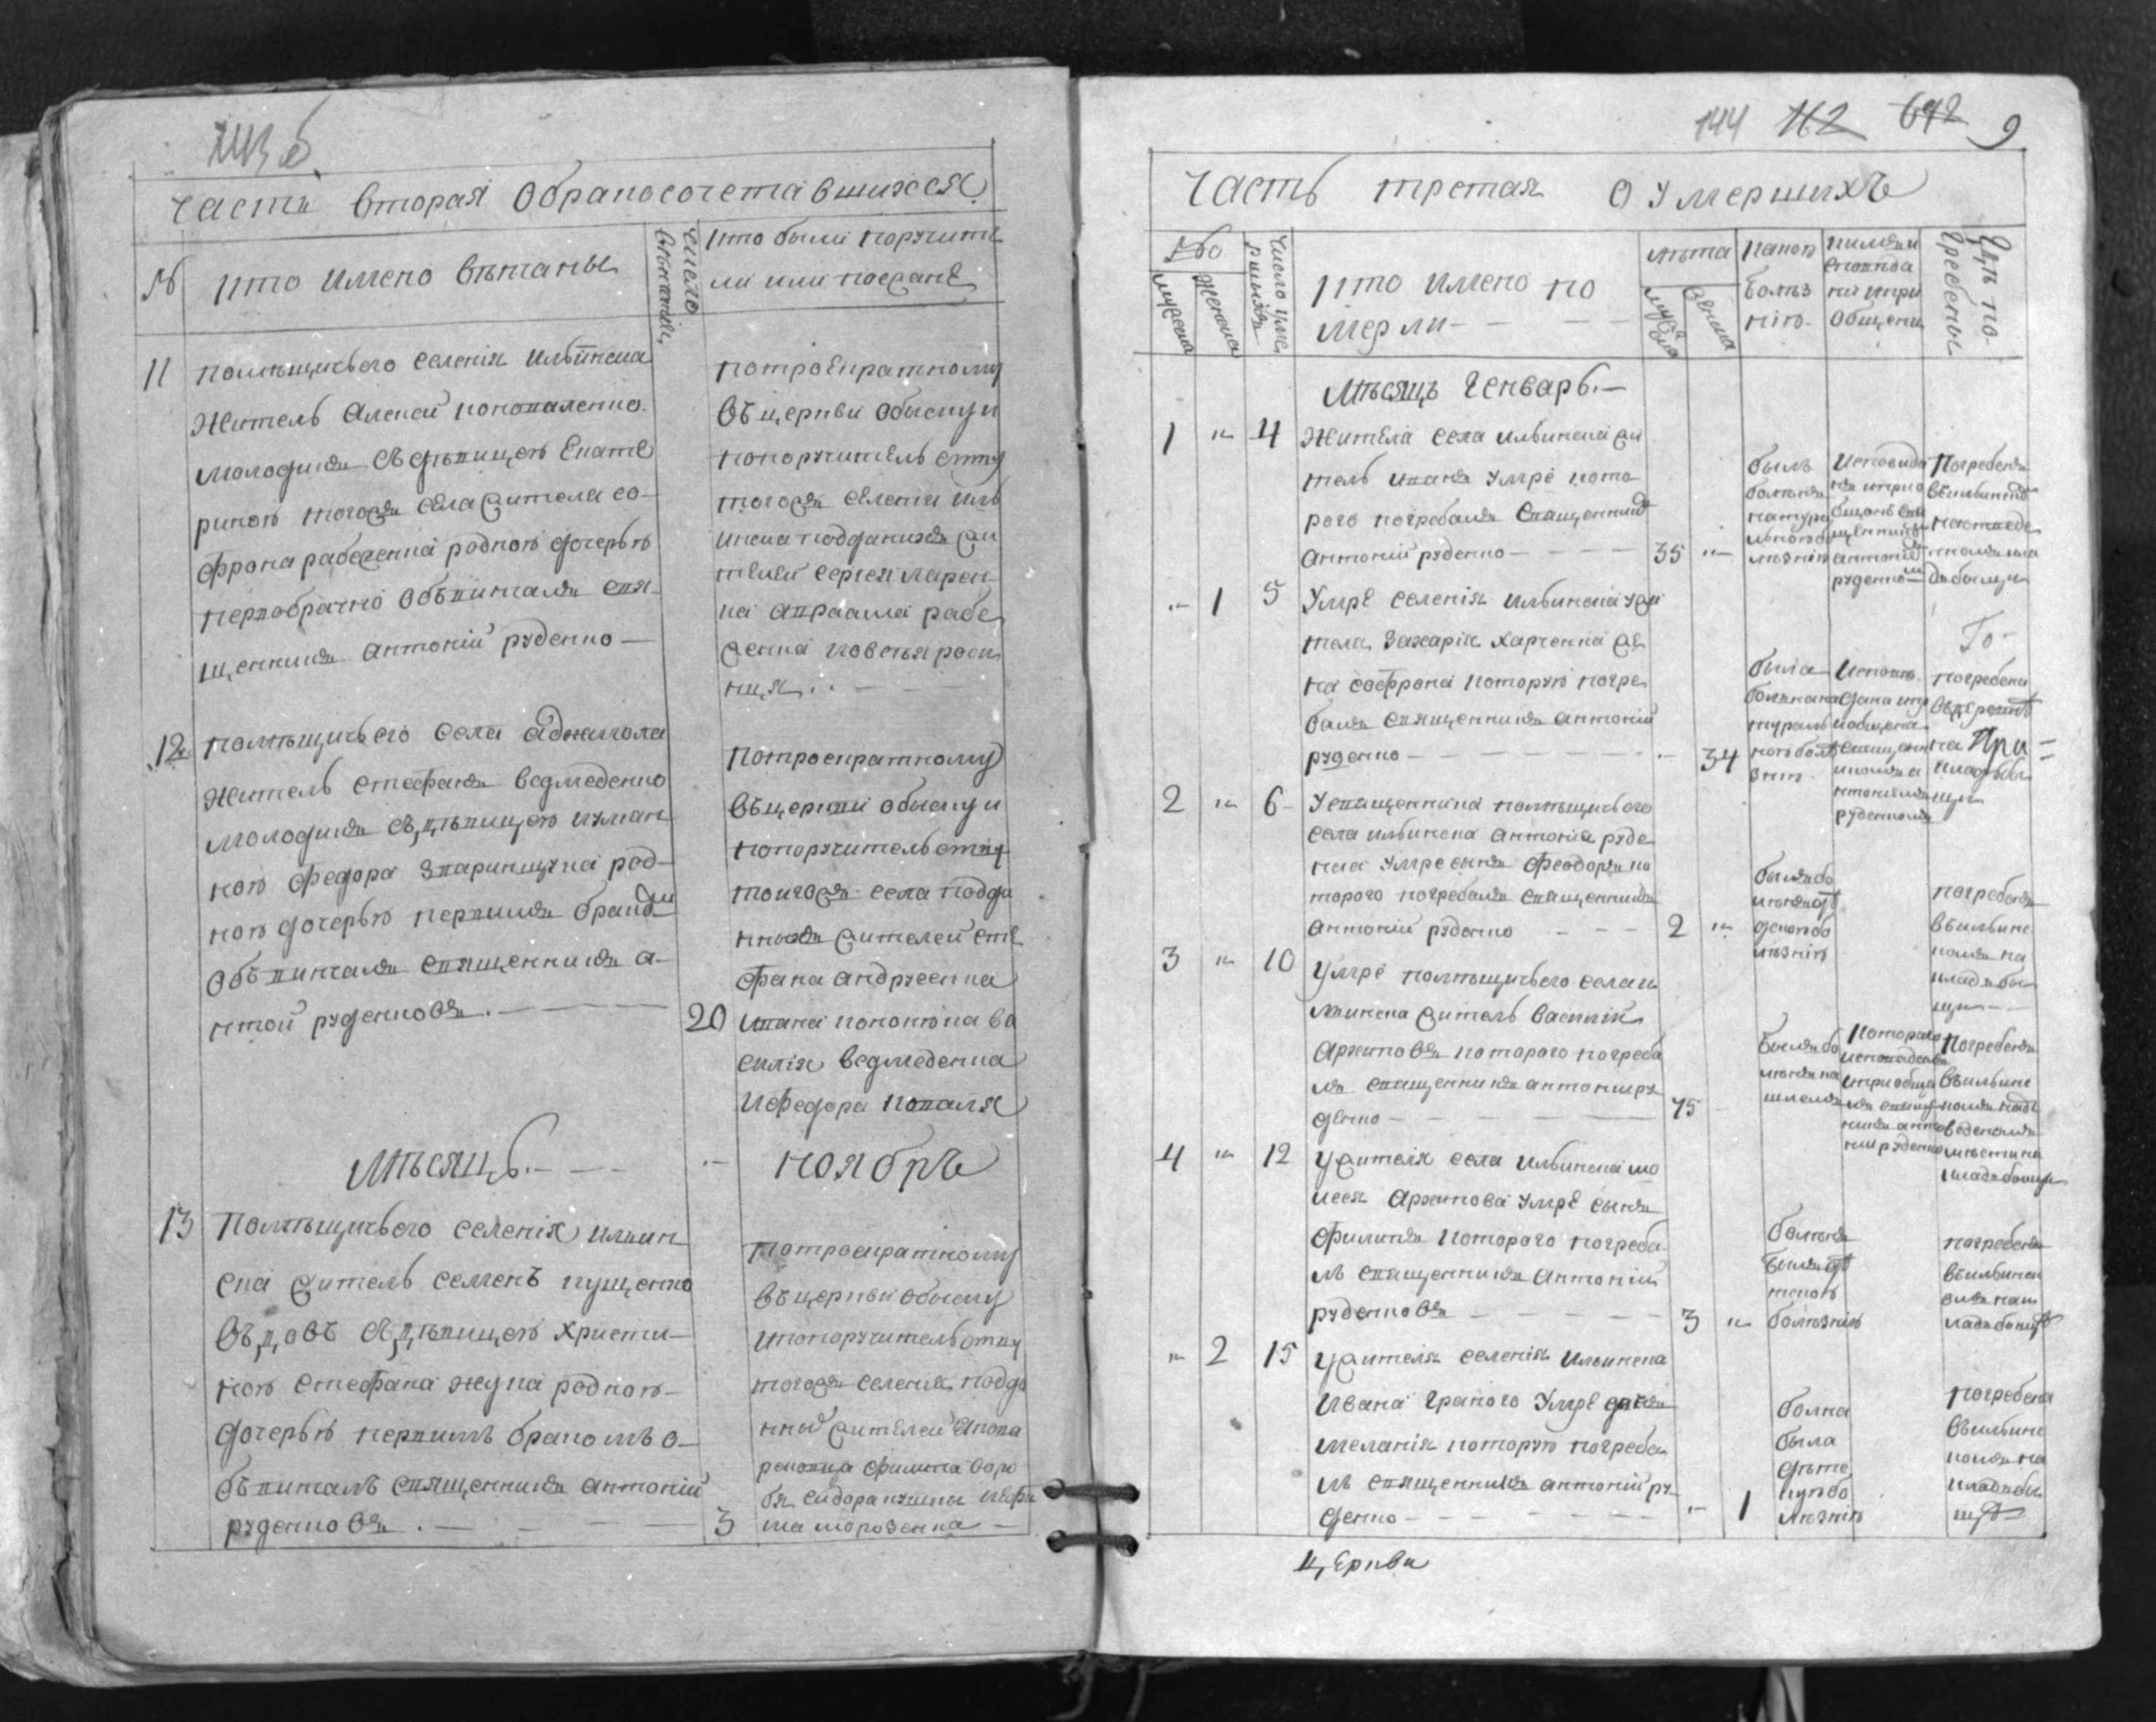 Части вторая о бракосочетавшихся
№
кто имено венчаны
число венчания
кто были поручите
ли или поезжане
11
помѣщичього селения ильинска
житель алексей коноваленко
молодикъ съ дѣвицею Екате
риною тогожъ села жителя со
фрона рабеченка родною дочерью
первобрачно обвѣнчалъ свя
щенникъ антоний руденко
потроекратному
въ церкви обыску и
попоручительству
тогожъ селения иль
инска подданихъ жи
телей сергея
авраама рабе
ченка
12 помѣщичьего села аджамска
житель стефанъ ведмеденко
молодикъ съ дѣвицею улиан
ною федора родною дочерью первимъ бракомъ
обвѣнчалъ священникъ а
нтоний руденковъ
20
потроекратному
въ церкви обыску и
попоручительству
тогожъ села подда
нныхъ жителей сте
фана андрусенка
ивана кононюка ва
силия ведмеденка
и федора коваля
Мѣсяцъ
ноябръ
13
помѣщичього селения ильин
ска житель семенъ куценко
въдовъ съ дѣвицею христи
ною стефана жука родною
дочерью первимъ бракомъ о
бвѣнчалъ священникъ антоний
руденковъ
3
потроекратному
въ церкви обыску
и попоручительству
тогожъ селения подда
нныхъ жителей
филипа воро
бя сидора и
морозенка
144 162 642 9
Часть третая о умершихъ
№о
мужеска
женска
число умертвия
кто имено по
мерли
лѣта
мужеска
женска
какою
болѣз
нию
кимъ и
исповѣда
ны и при
общены
гдѣ по
гребены
Мѣсяцъ Генварь
1 " 4 жителя села ильинска жи
тель иванъ умре кото
рого погребалъ священникъ
антоний руденко 35 "
былъ
боленъ
натура
льною бо
лѣзнию
исповеда
нъ и прио
бщонъ свя
щенникомъ
антонием
руденкомъ
погребенъ
въ ильинской
на отведе
нномъ кла
дъбищи
" 1 5 умре селения ильинска жи
теля захария харченка же
на софрона которую погре
балъ священникъ антоний
руденко 34
была
больна на
турал
ною болѣ
знию
исповѣ
дана и при
иобщена
священ
никомъ а
нтониемъ
руденкомъ
погребена
на при
кладъби
щи
2 " 6 у священника помѣщичього
села ильинска антония руде
нка умре сынъ феодоръ ко
торого погребалъ священникъ
антоний руденко 2 "
былъ бо
ленъ дѣ
цкою бо
лѣзнию
погребенъ
въ ильинс
комъ на
кладъби
щи
3 " 10 умре помѣщичього села и
льинска житель василий
архиповъ которого погреба
лъ священникъ антоний ру
денко 75
былъ бо
ленъ ка
шлемъ
которого
исповедалъ
и приобща
лъ священ
никъ анто
ний руденко
погребенъ
въ ильинс
комъ на от
веденомъ
мѣсти на
кладъбищи
4 " 12 у жителя села ильинска мо
исея архипова умре сынъ
филипъ которого погреба
лъ священникъ антоний
руденковъ 3 "
боленъ
былъ дѣ
тскою
болѣзнию
погребенъ
въ ильинск
омъ на к
ладъбищѣ
" 2 15 у жителя селения ильинска
ивана умре дочь
мелания которую погреба
лъ священникъ антоний ру
денко " 1
болна
была
дѣтс
кую бо
лѣзнию
погребена
въ ильинс
комъ на
кладъби
щѣ
церкви